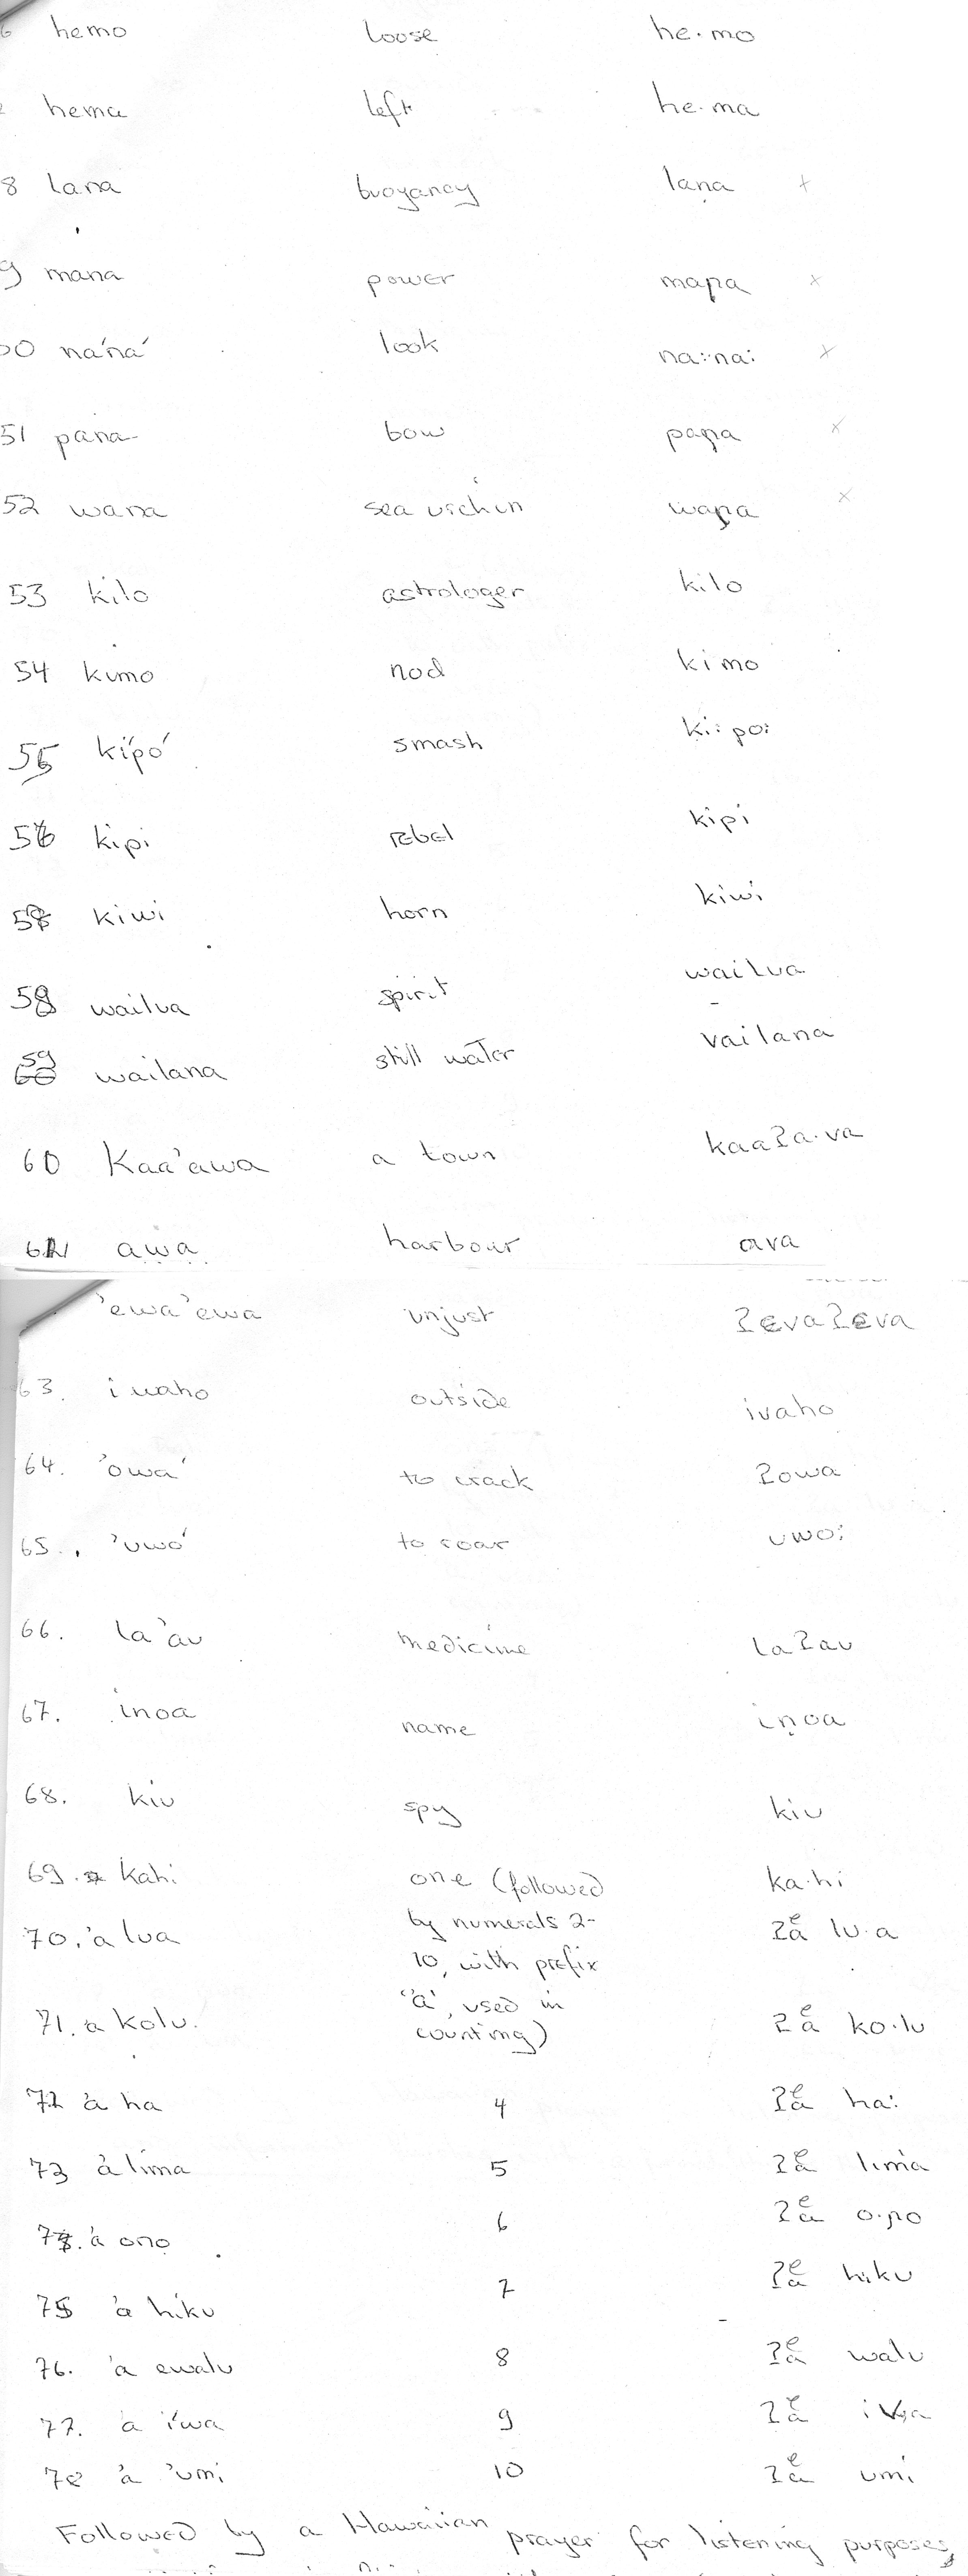 6 hemo loose he·mo
hema left he·ma
8 lana buoyancy laṇa x
9 mana power maɲa x
00 na'na' look na:na: x
51 pana bow paɲa x
52 wana sea urchin waɲa x
53 kilo astrologer kilo
54 kimo nod kimo
55 ki'po' smash ki:po:
56 kipi rebel kipi
58 kiwi horn kiwi
58 wailua spirit wailua
59 wailana still water vailana
60 Kaa'awa a town kaaʔa·va
61 awa harbour ava
'ewa'ewa unjust ʔevaʔeva
63. i waho outside ivaho
64. 'owa' to crack ʔowa
65. 'uwo' to roar uwo:
66. la'au medicine laʔau
67. inoa name iṇoa
68. kiu spy kiu
69. kahi one (followed ka·hi
70. 'a lua by numerals 2- ʔa lu·a
10, with prefix
"a", used in
71. 'a kolu. counting) ʔa ko·lu
72 'a ha 4 ʔa ha:
73 'a lima 5 ʔa lima
74. 'a ono 6 ʔa o·ɲo
75 'a hiku 7 ʔa hiku
76. 'a ewalu 8 ʔa walu
77. 'a i'wa 9 ʔa iva
78 'a 'umi 10 ʔa umi
Followed by a Hawaiian prayer for listening purposes,